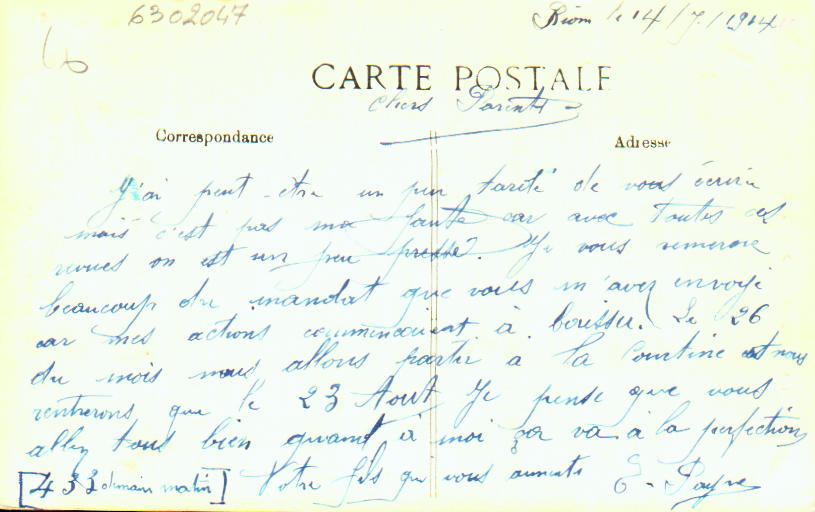 6302047
Riom le 14/7/1914
CARTE POSTALE
Chers Parents
Correspondance
Adresse
J'ai peut-etre un peu tardé de vous écrire
mais c'est pas ma faute car avec toutes ces
revues on est un peu pressé. Je vous remercie
beaucoup du mandat que vous m'avez envoyé
car mes actions commencaient à baisser. Le 26
du mois nous allons partir à la Courtine et nous
rentrerons que le 23 Aout Je pense que vous
allez tous bien quant à moi ça va à la perfection
[433 demain matin] Votre fils qui vous
E. Payre